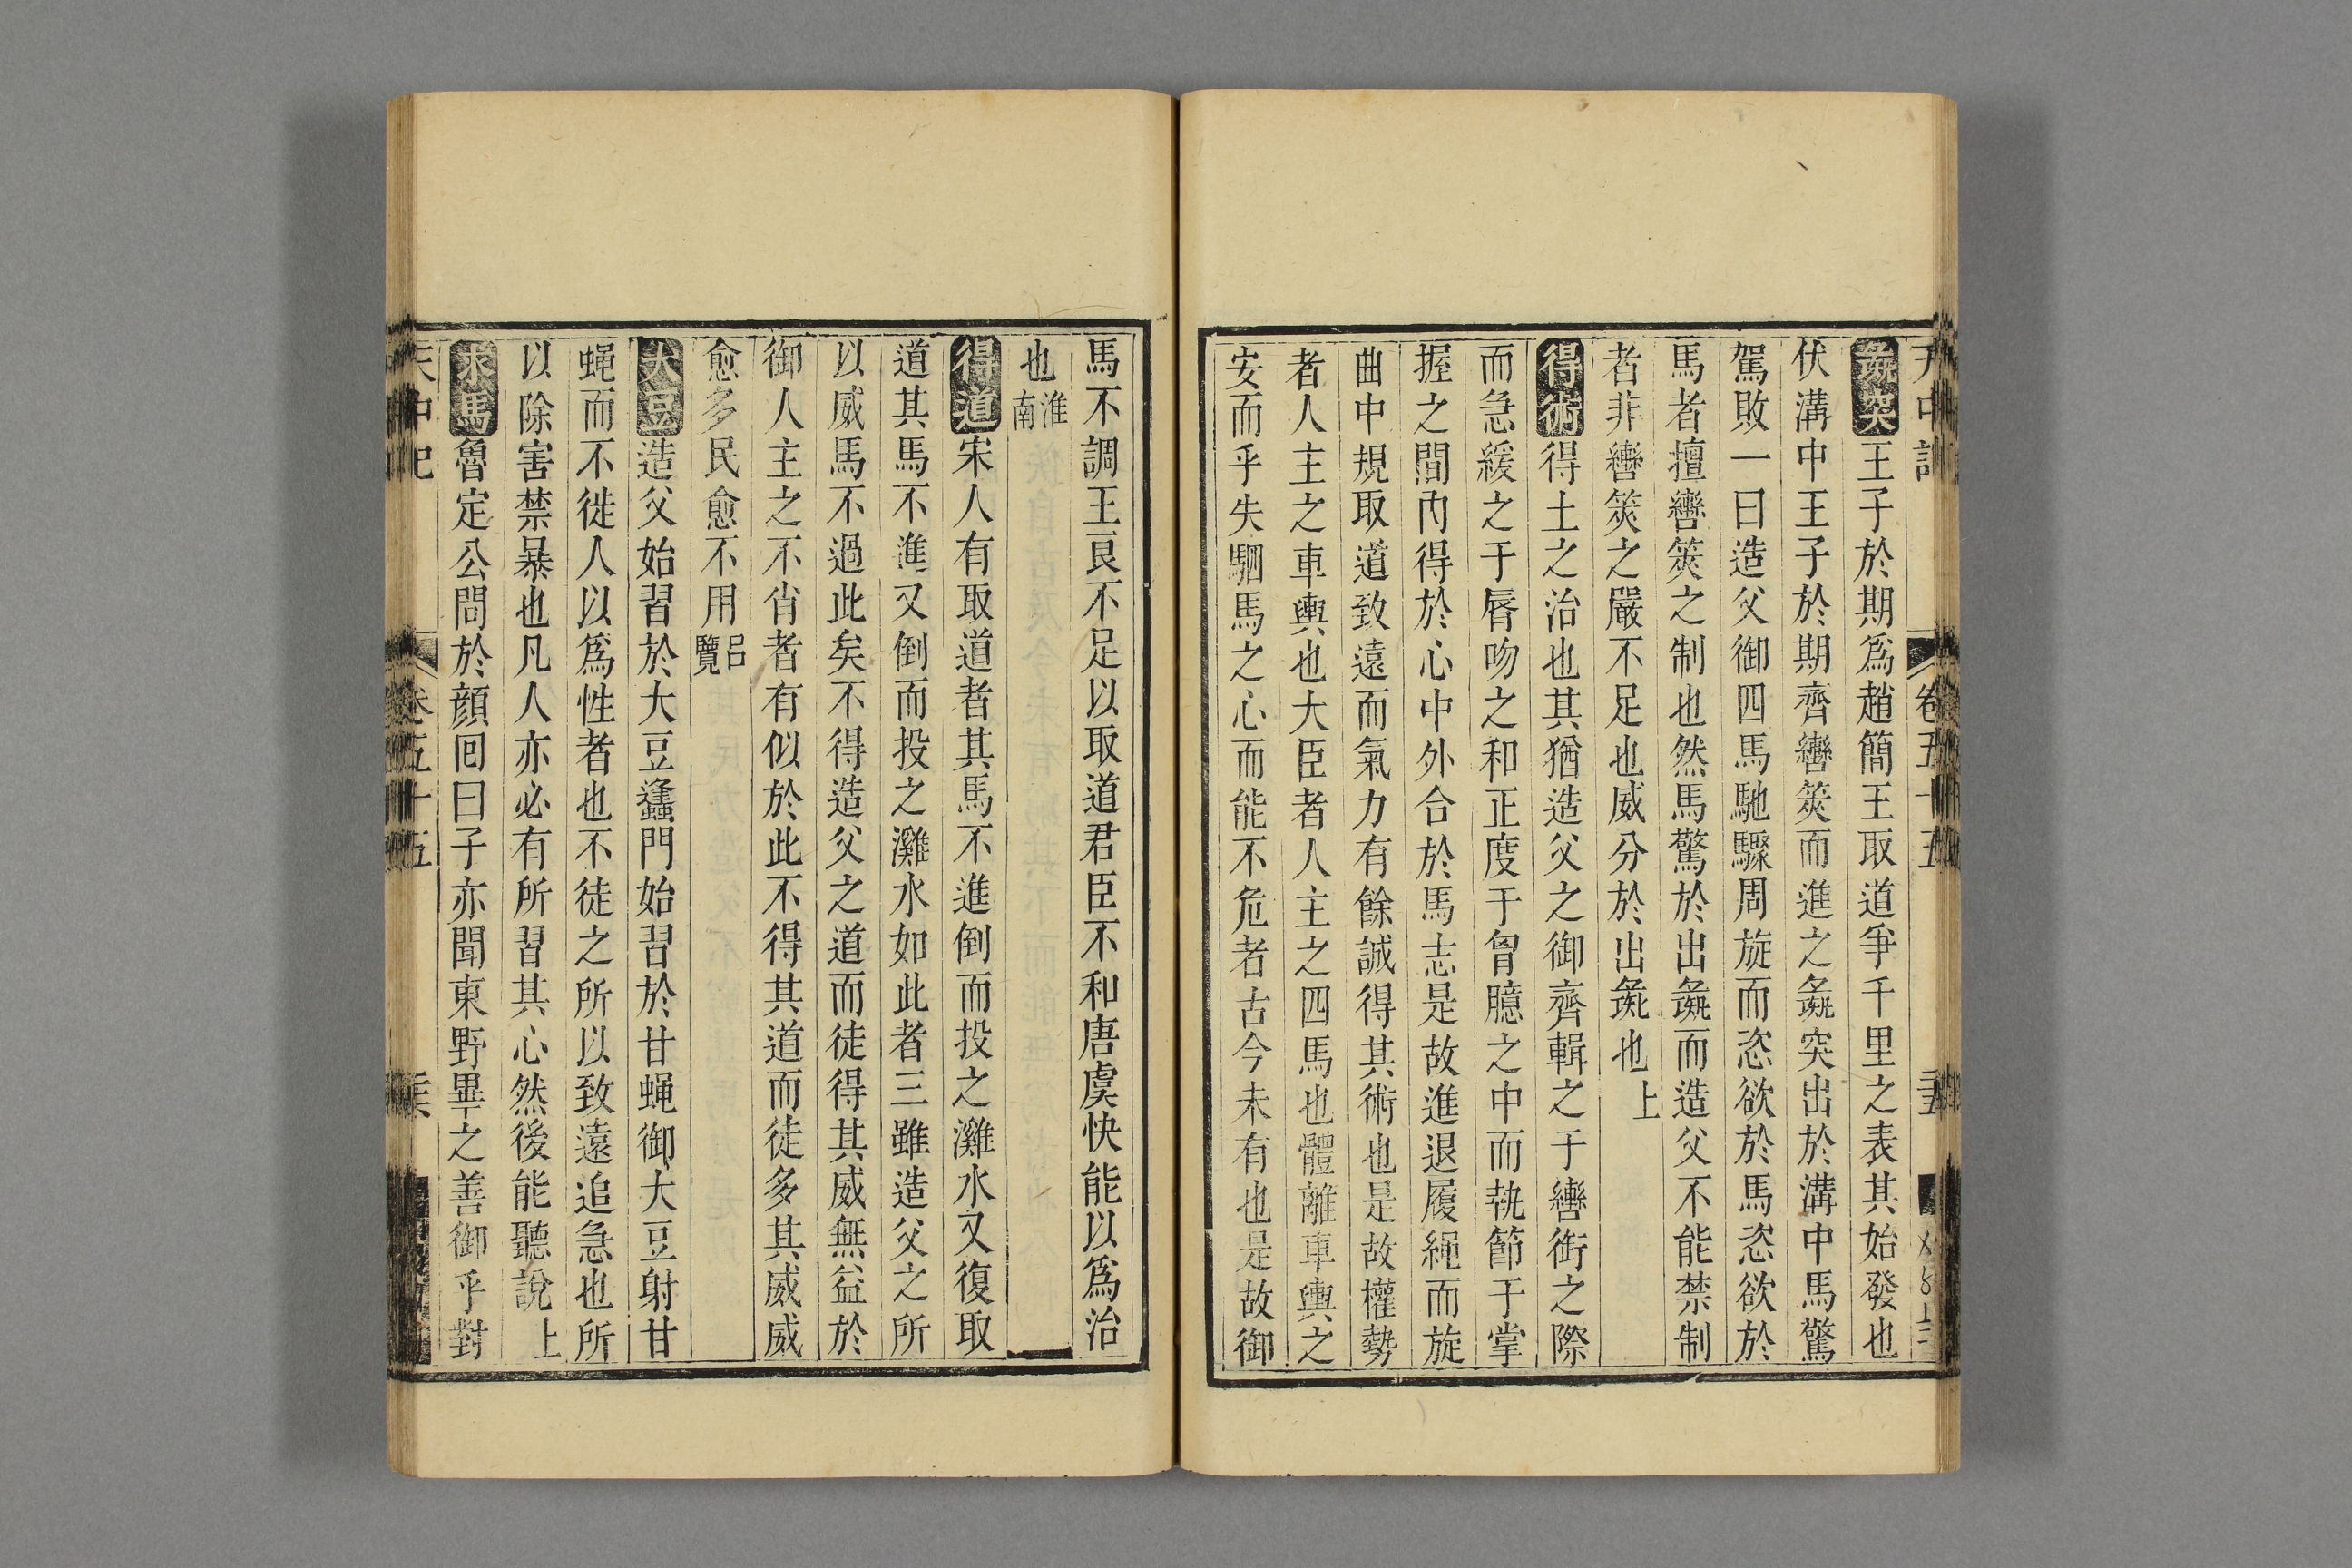 天中記 卷五十五
彘突王子於期爲趙簡王取道爭千里之表其始發也彘
伏溝中王子於期齊轡筴而進之彘突出於溝中馬驚
駕敗一曰造父御四馬馳驟周旋而恣欲於馬恣欲於
馬者擅轡筴之制也然馬驚於出彘而造父不能禁制
者非轡筴之嚴不足也威分於出彘也上
得術得土之治也其猶造父之御齊輯之于轡銜之際
而急緩之于脣吻之和正度于胷臆之中而執節于掌
握之間內得於心中外合於馬志是故進退履繩而旋
曲中規取道致遠而氣力有餘誠得其術也是故權勢
者人主之車輿也大臣者人主之四馬也體離車輿之
安而乎失駟馬之心而能不危者古今未有也是故御
馬不調王良不足以取道君臣不和唐虞快能以爲治
也淮南
得道宋人有取道者其馬不進倒而投之灘水又復取
道其馬不進又倒而投之灘水如此者三雖造父之所
以威馬不過此矣不得造父之道而徒得其威無益於
御人主之不肖者有似於此不得其道而徒多其威威
愈多民愈不用呂覽
大豆造父始習於大豆蠭門始習於甘蝿御大豆射甘
蝿而不徙人以爲性者也不徒之所以致遠追急也所
以除害禁暴也凡人亦必有所習其心然後能聽說上
求馬魯定公問於顔回曰子亦聞東野畢之善御乎對
天中記 卷五十五